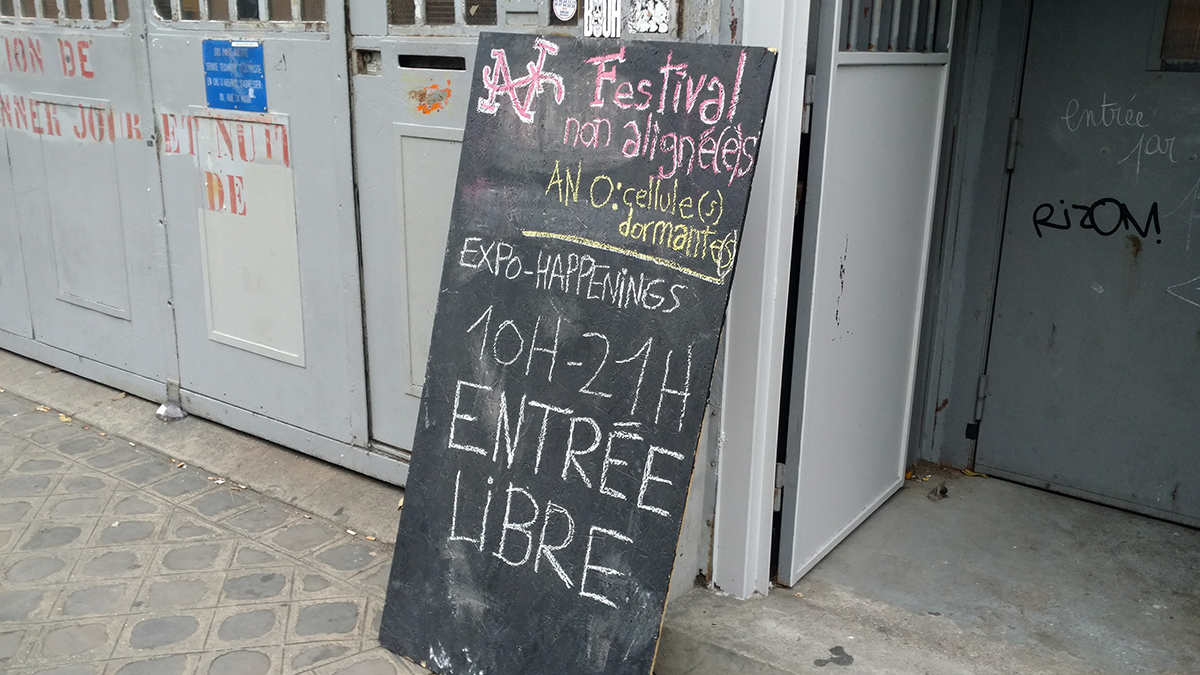 ION DE
NNER JOUR ET NUIT
DE
BOUH
Festival
non aligné(e)s
AN 0: cellule(s)
dormante(s)
EXPO-HAPPENINGS
10H-21H
ENTRÉE
LIBRE
entrée
par
RIZOM!